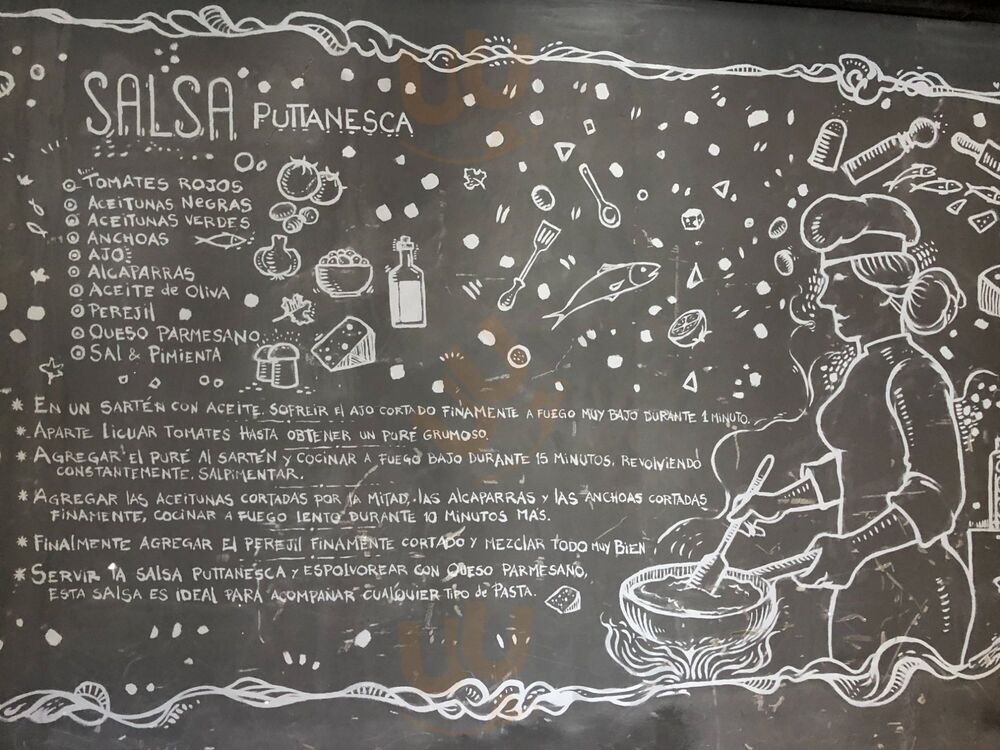 SALSA PUTTANESCA
TOMATES ROJOS
ACEITUNAS NEGRAS
ACEITUNAS VERDES
ANCHOAS
AJO
ALCAPARRAS
ACEITE de OLIVA
PEREJIL
QUESO PARMESANO
SAL & PIMIENTA
* EN UN SARTÉN CON ACEITE, SOFREIR El AJO CORTADO FINAMENTE A FUEGO MUY BAJO DURANTE 1 MINUTO.
* APARTE LICUAR TOMATES HASTA OBTENER UN PURÉ GRUMOSO.
* AGREGAR EL PURÉ AL SARTÉN Y COCINAR A FUEGO BAJO DURANTE 15 MINUTOS, REVOLVIENDO
CONSTANTEMENTE. SALPIMENTAR.
* AGREGAR LAS ACEITUNAS CORTADAS POR lA MITAD, lAS ALCAPARRAS Y lAS ANCHOAS CORTADAS
FINAMENTE, COCINAR A FUEGO LENTO DURANTE 10 MINUTOS MÁS.
* FINALMENTE AGREGAR El PEREJIL FINAMENTE CORTADO Y MEZCLAR TODO MUY BIEN
* SERVIR lA SALSA PUTTANESCA Y ESPOLVOREAR CON QUESO PARMESANO,
ESTA SALSA ES IDEAL PARA ACOMPAÑAR CUALQUIER TIPO de PASTA.